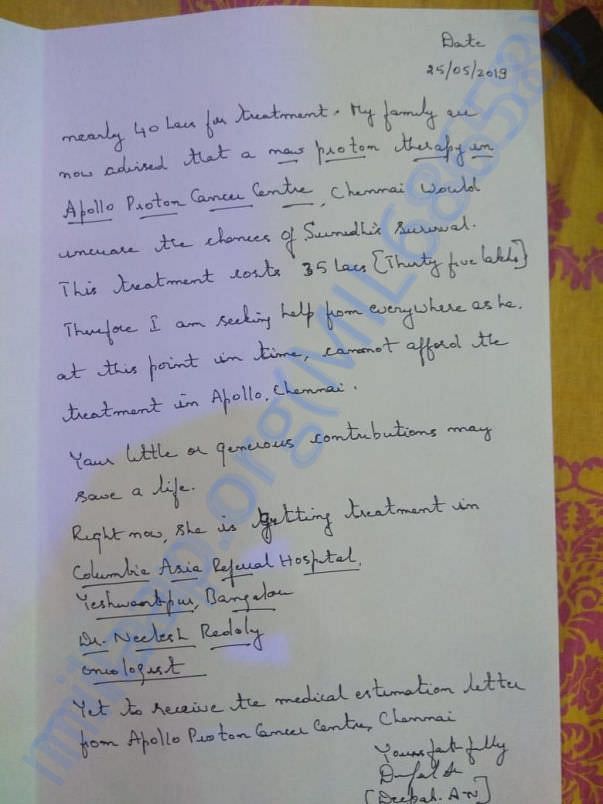 Date
25/05/2019
nearly 40 Lacs for treatment. My family are
now advised that a new proton therapy in
Apollo Proton Cancer Centre, Chennai would
increase the chances of Sunidhi's survival.
This treatment costs 35 lacs [Thirty five lakhs]
Therefore I am seeking help from everywhere as he.
at this point in time, cannot afford the
treatment in Apollo, Chennai.
Your little or generous contributions may
save a life.
Right now, she is getting treatment in
Columbia Asia Referral Hospital,
Yeshwantpur, Bangalore
Dr. Neelesh Reddy
oncologist
Yet to receive the medical estimation letter
from Apollo Proton Cancer Centre, Chennai
Yours faithfully
[Deepak. A N]
milaap.org(MIL68658